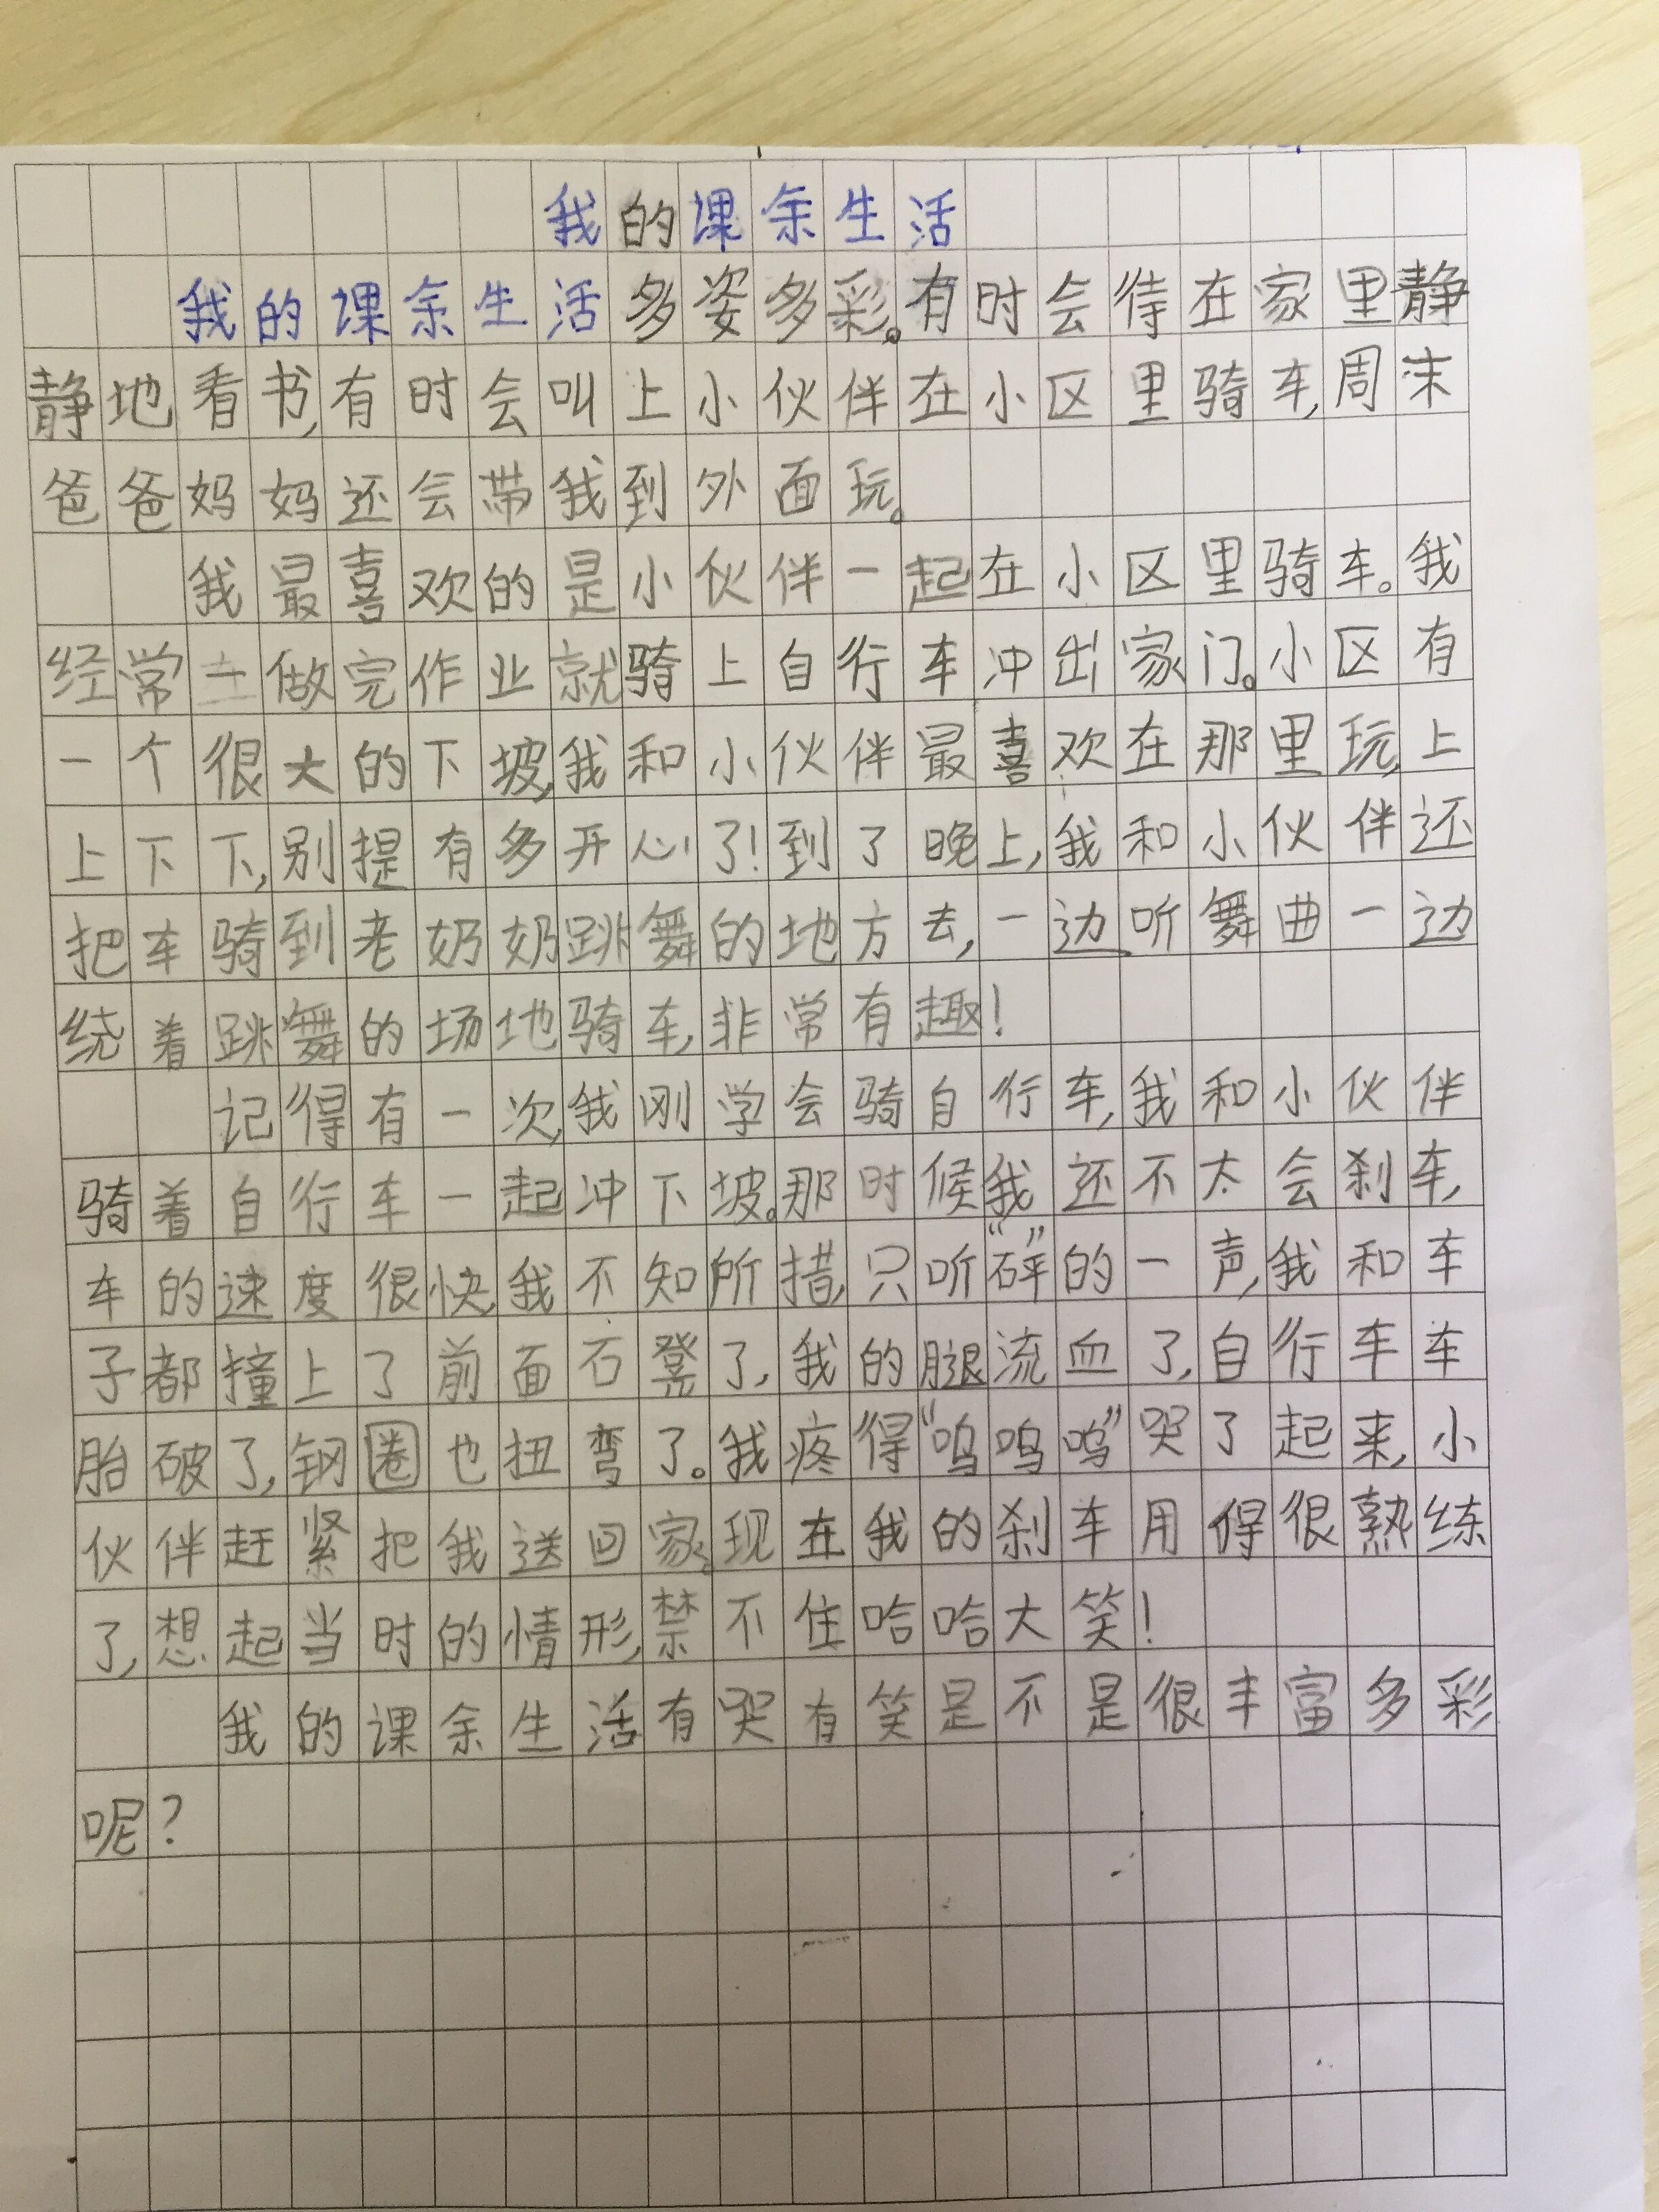 我的课余生活
我的课余生活多姿多彩。有时会待在家里静
静地看书,有时会叫上小伙伴在小区里骑车,周末
爸爸妈妈还会带我到外面玩。
我最喜欢的是小伙伴一起在小区里骑车。我
经常做完作业就骑上自行车冲出家门。小区有
一个很大的下坡,我和小伙伴最喜欢在那里玩,上
上下下,别提有多开心了!到了晚上,我和小伙伴还
把车骑到老奶奶跳舞的地方去,一边听舞曲一边
绕着跳舞的场地骑车,非常有趣!
记得有一次,我刚学会骑自行车,我和小伙伴
骑着自行车一起冲下坡。那时候我还不太会刹车,
车的速度很快,我不知所措,只听“砰”的一声,我和车
子都撞上了前面石凳了,我的腿流血了,自行车车
胎破了,钢圈也扭弯了。我疼得“呜呜呜”哭了起来,小
伙伴赶紧把我送回家。现在我的刹车用得很熟练
了,想起当时的情形,禁不住哈哈大笑!
我的课余生活有哭有笑是不是很丰富多彩
呢?